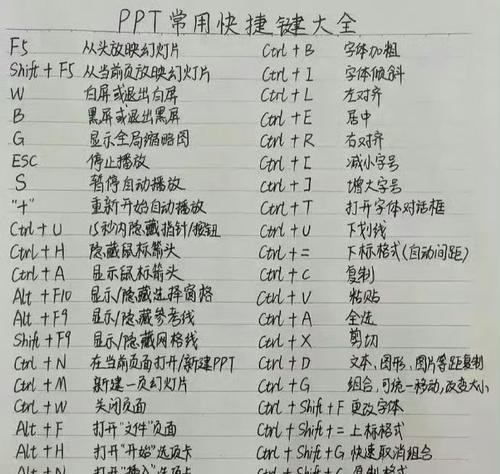 PPT常用快捷键大全
F5 从头放映幻灯片
Shift + F5 从当前页放映幻灯片
W 白屏或退出白屏
B 黑屏或退出黑屏
G 显示全局缩略图
ESC 停止播放
S 暂停自动播放
"+" 重新开始自动播放
Ctrl + U 15秒内隐藏指针/按钮
Ctrl + H 隐藏鼠标箭头
Ctrl + A 显示鼠标箭头
Alt + F10 显示/隐藏选择窗格
Alt + F9 显示/隐藏参考线
Shift + F9 显示/隐藏网格线
Ctrl + N 在当前页面打开/新建PPT
Ctrl + M 新建一页幻灯片
Ctrl + W 关闭页面
Alt + F 打开"文件"页面
Alt + H 打开"开始"选项卡
Alt + N 打开"插入"选项卡
Ctrl + B 字体加粗
Ctrl + I 字体倾斜
Ctrl + L 左对齐
Ctrl + E 居中
Ctrl + R 右对齐
Ctrl + [ 减小字号
Ctrl + ] 增大字号
Ctrl + T 打开字体对话框
Ctrl + U 下划线
Ctrl + = 下标格式(自动间距)
Ctrl + C 复制
Ctrl + V 粘贴
Ctrl + A 全选
Ctrl + X 剪切
Ctrl + D 文本、图形、图片等距复制
Ctrl + G 组合,可统一移动,改变大小
Ctrl + Shift + F 更改字体
Ctrl + Shift + = 上标格式
Ctrl + Shift + G 快速取消组合
Ctrl + Shift + C 复制格式